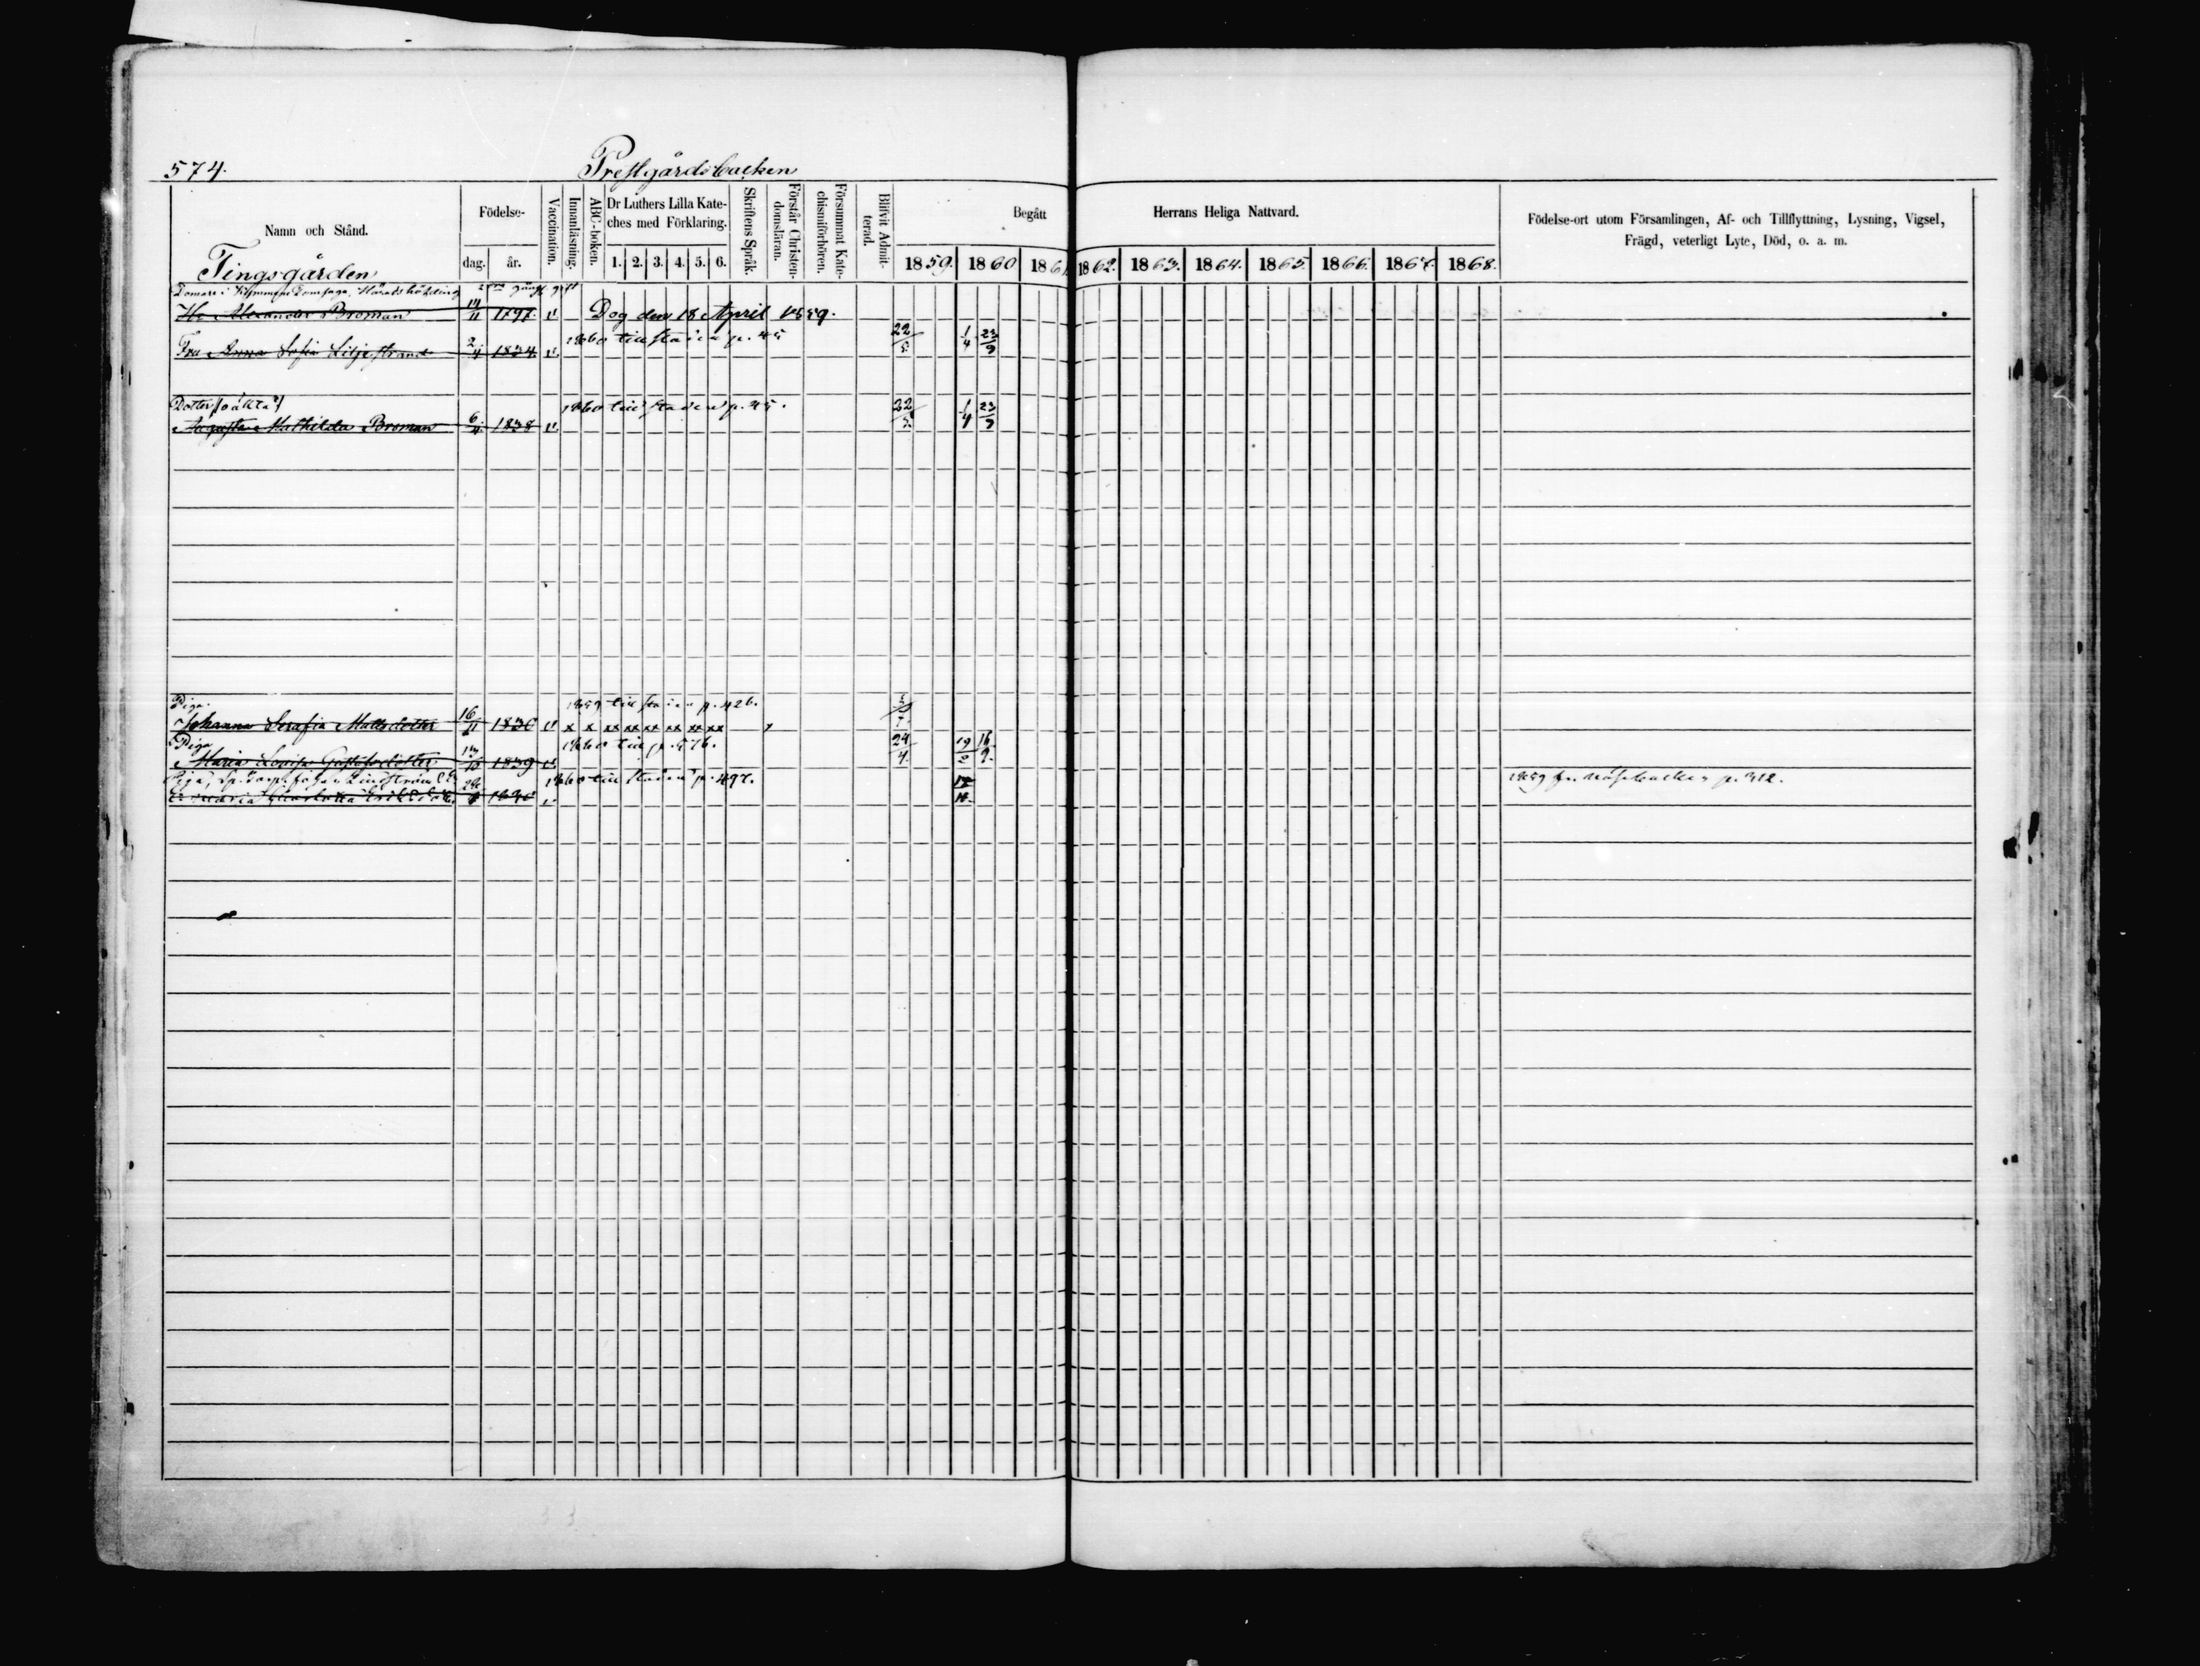 574.
Prestgårdsbacken
Namn och Stånd.
Födelse-
dag. år.
Vaccination.
Innanläsning.
ABC-boken.
Dr Luthers Lilla Kate-
ches med Förklaring.
1. 2. 3. 4. 5. 6.
Skriftens Språk.
Förstår Christen-
domsläran.
Försummat Kate-
chismiförhören.
Blifvit Admit-
terad.
Begått Herrans Heliga Nattvard.
1859. 1860 1861 1862. 1863. 1864. 1865. 1866. 1867. 1868.
Födelse-ort utom Församlingen, Af- och Tillflyttning, Lysning, Vigsel,
Frägd, veterligt Lyte, Död, o. a. m.
Tingsgården
Domare i Domsaga, Häradshöfding
Hr Alexander Broman 1797. v Dog den 18 April 1859.
Fru Anna Sofia Liljestrand 2/4 1834 v. 1860 till staden p. 45 22/5 1/4 23/9
Dotter (oäkta)
Augusta Mathilda Broman 1838 v. 1860 till staden p. 45. 22/5 1/4 23/9
Piga.
Johanna Serafia Mattsdotter 16/11 1836 v 1859 till staden p. 426.
x x xx xx xx xx xx xx x
Piga
Maria Lovisa Gustafsdotter 13/10 1839 v. 1860 till p. 576. 24/4. 19/2 16/9.
Piga, Lindström
Maria Eriksd. 1860 till staden p. 497. 1859 fr. p. 312.